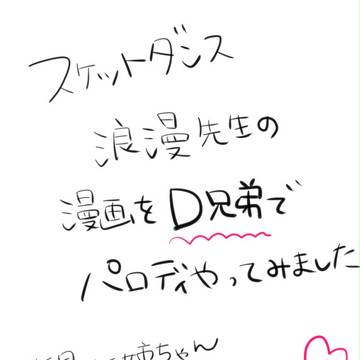 スケットダンス
浪漫先生の
漫画をD兄弟で
パロディやってみました
姉ちゃん